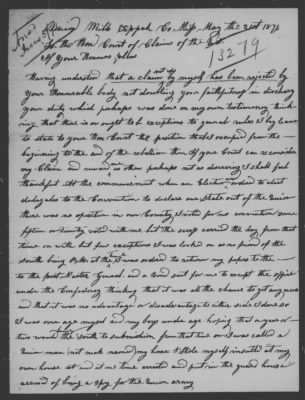 Mill Tippah Co. Miss. May the 21st 1876
To the Hon Court of Claims of the
If your Honours please
13279
Having understod that a claim by myself has been rejected by
your Honorable body not doubting your faithfulness in discharg
your duty which perhaps was done on my own testimony think-
ing that there is or ought to be exceptions to general rules I beg leave
to state to your Hon Court the position that I occupied from the
beginning to the end of the rebellion then If your Court can reconsider
my Claim and reward me then perhaps not as deserving I shall feel
thankful At the commencement when an Election orded to elect
delagates to the Convention to declare our State out of the Union
there was no oposition in our County I voted for no convention some
fifteen or twenty voted with me but the excep carried the day from that
time on with but few exceptions I was looked on as no friend of the
south being P.M. at the I was ordred to return my papers to the
to the post Master General and a Bond sent for me to except the office
under the Confedracy thinking that it was all the chance to get any news
and that it was no advantage or disadvantage to either side I done so
I was over age myself and my boys under age hoping that a year or
two would the south to submission from that time on I was called a
Union man (not neck named) my house & Stole myself insulted at my
own house at and at one time arrested and put in the guard house
accused of being a spy for the Union army